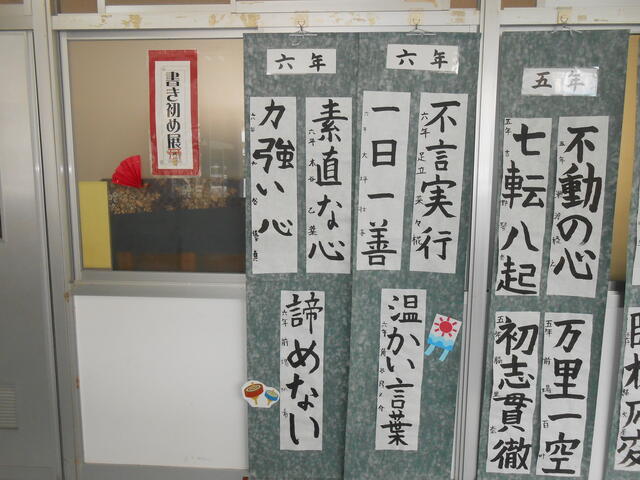 書き初め展
六年
素直な心
力強い心
諦めない
六年
不言実行
一日一善
温かい言葉
五年
不動の心
七転八起
万里一空
初志貫徹
臨機応変